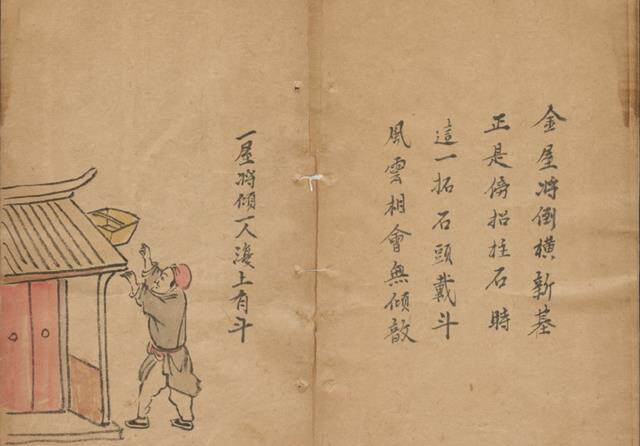 金屋将倒橫新基
正是傍招拄石時
這一拓石頭戴斗
風雲相會無傾敧
一屋将傾一人上有斗